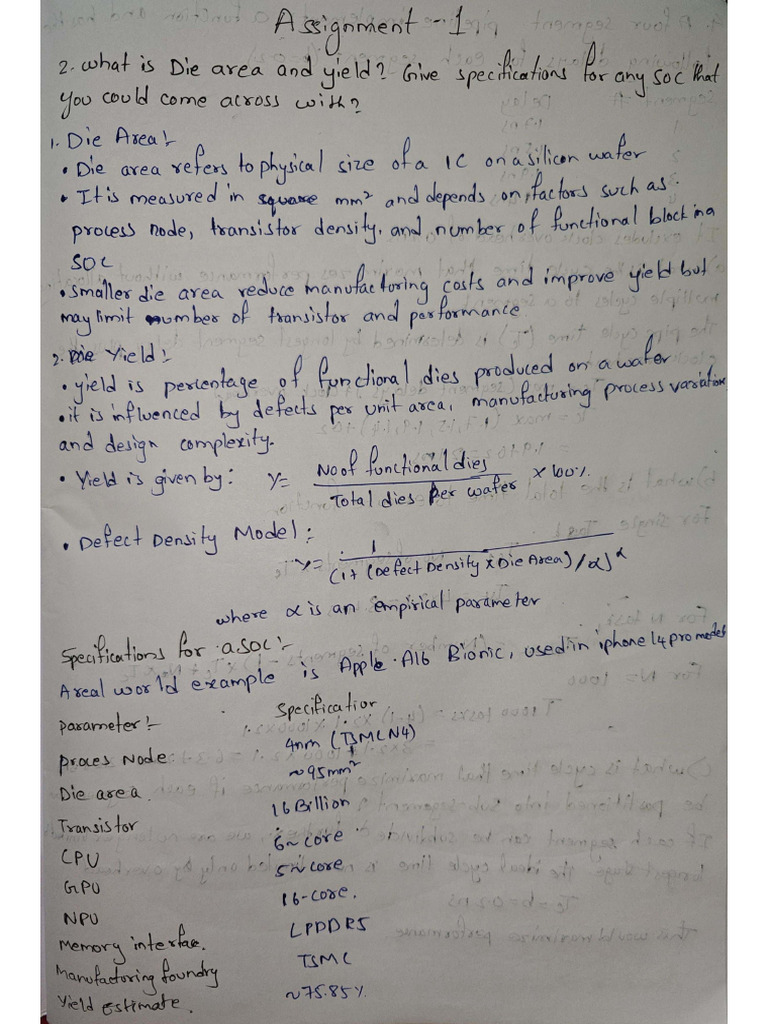 Assignment - 1
2. What is Die area and yield? Give specifications for any SOC that
you could come across with?
1. Die Area:-
• Die area refers to physical size of a IC on a silicon wafer
• It is measured in square mm² and depends on factors such as
process node, transistor density, and number of functional block in a
SOC
• Smaller die area reduce manufacturing costs and improve yield but
may limit number of transistor and performance
2. Yield:-
• yield is percentage of functional dies produced on a wafer
• it is influenced by defects per unit area, manufacturing process variation
and design complexity.
• Yield is given by: Y= No of functional dies / Total dies Per wafer × 100%
• Defect Density Model:
Y= 1 / (1+ (Defect Density × Die Area) / α)^α
where α is an empirical parameter
Specifications for a SOC:-
A real world example is Apple A16 Bionic, used in iphone 14 pro models
Parameter:- Specification
Proces Node: 4nm (TSMC N4)
Die area ~95mm²
Transistor 16 Billion
CPU 6-core
GPU 5-core
NPU 16-core.
Memory interface. LPDDR5
Manufactoring foundry TSMC
Yield estimate. ~75.85%